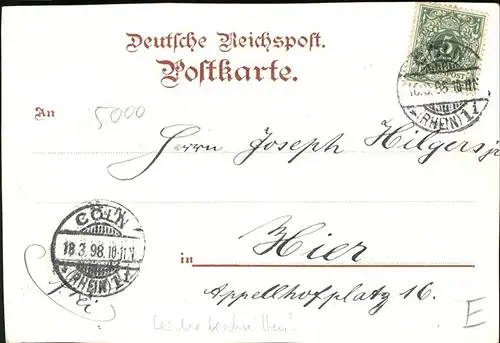 Deutsche Reichspost.
Postkarte.
An
5000
Herrn Joseph Hilgers jr
CÖLN
18.3.98.10-11.V.
*(RHEIN)1*
in
Hier
Appellhofplatz 16.
18.3.98.10-11.V.
*(RHEIN)1*
E